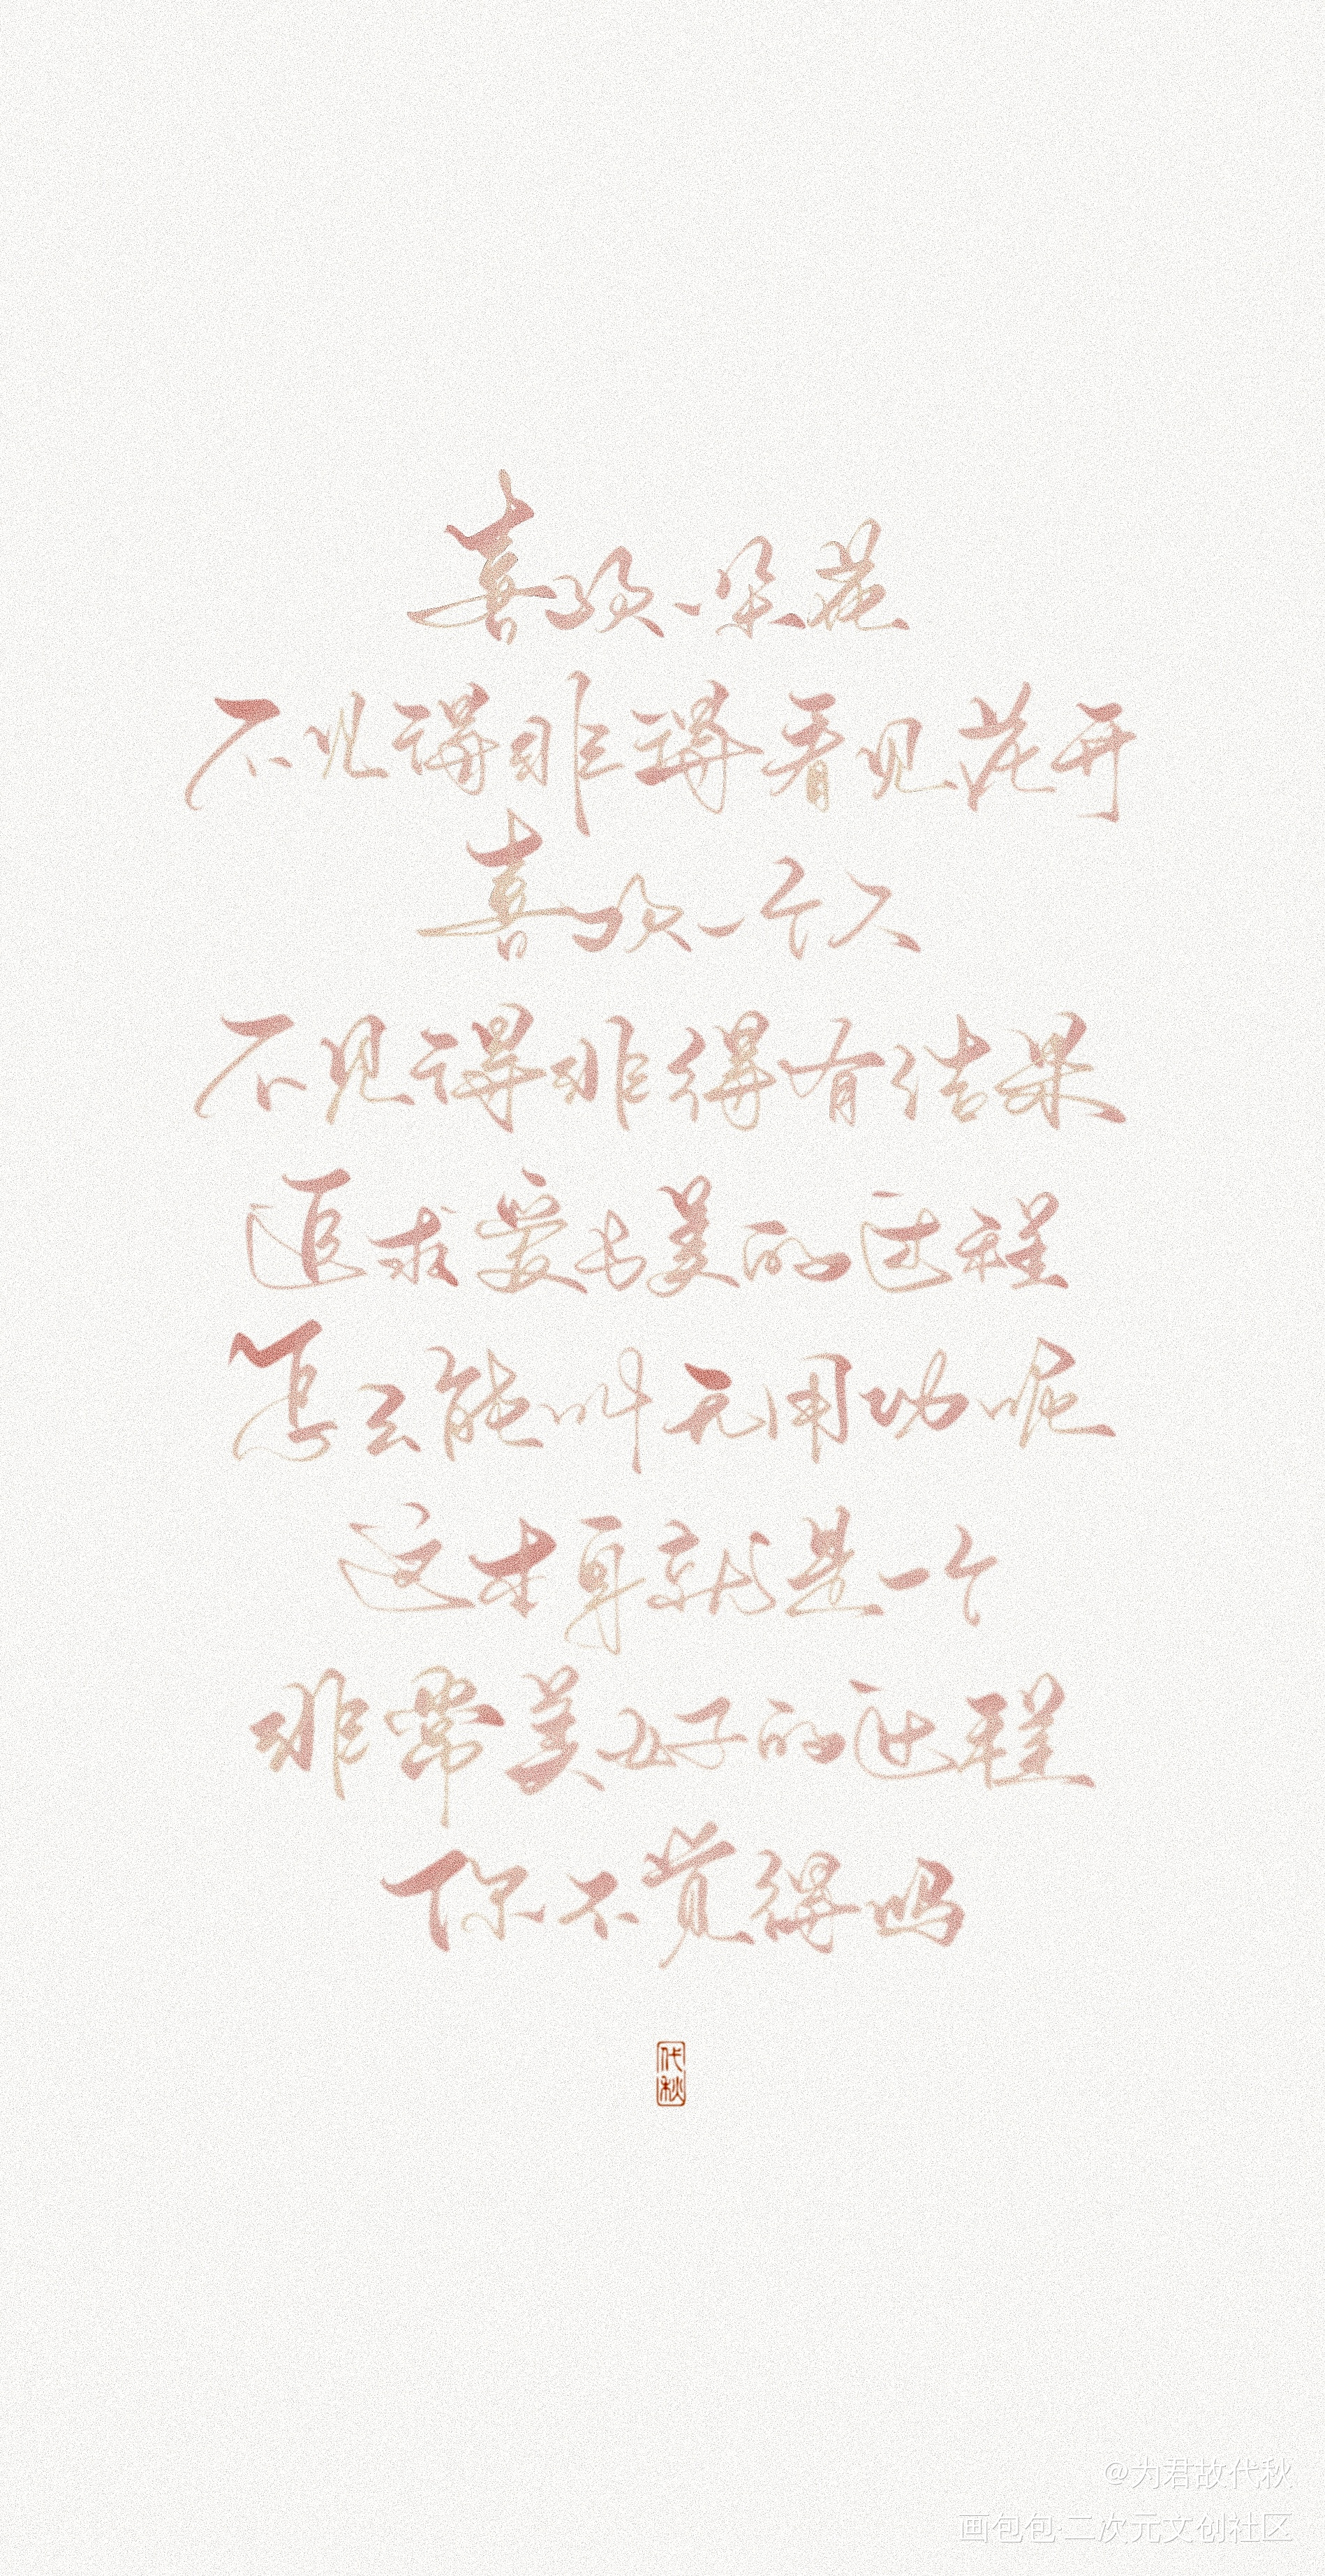 喜欢一朵花
不见得非得看见花开
喜欢一个人
不见得非得有结果
追求爱与美的过程
怎么能叫无用功呢
这本身就是一个
非常美好的过程
你不觉得吗
代秋
@为君故代秋
画包包·二次元文创社区